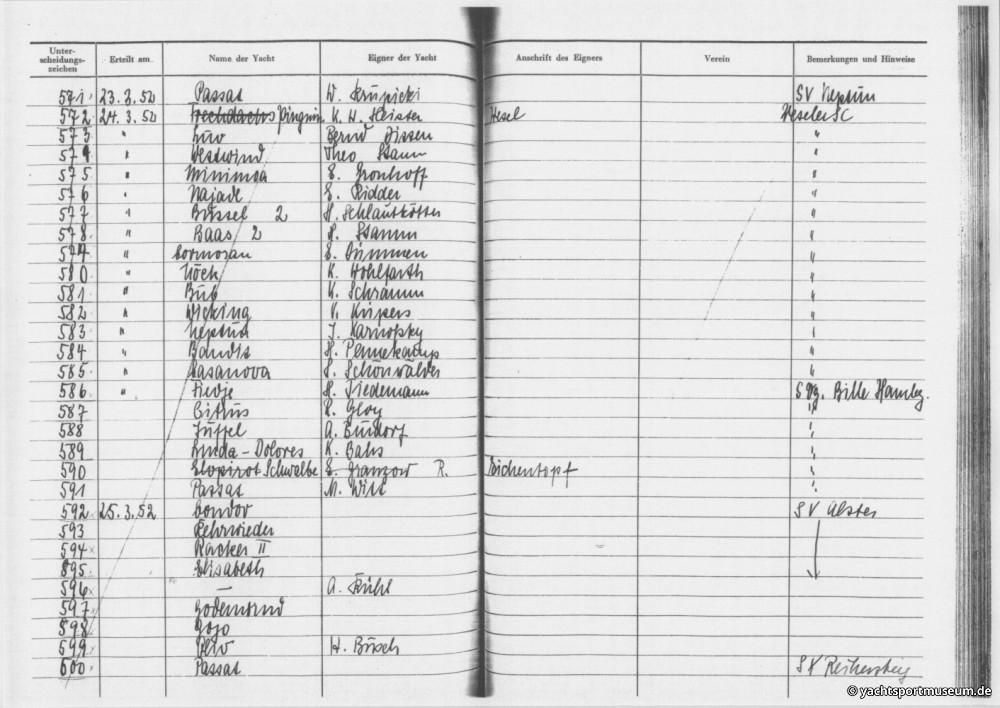 Unter-
scheidungs-
zeichen Erteilt am Name der Yacht Eigner der Yacht Anschrift des Eigners Verein Bemerkungen und Hinweise
571 23.3.52 Passat W. Krupicki SV Neptun
572 24.3.52 Pinguin K. H. Heister Wesel Weseler SC
573 " Luv Bernd Dissen "
574 " Westwind Theo Stamm "
575 " Minimosa E. Gronhoff "
576 " Najade E. Ridder "
577 " Büssel 2 H. Schlautkötter "
578 " Baas 2 H. Stamm "
579 " Cormoran E. Dümmen "
580 " Nöck K. Hohlfarth "
581 " Bub K. Schramm "
582 " Wicking V. Küpers "
583 " Neptun J. Karnofsky "
584 " Bandit H. Pennekamp "
585 " Casanova S. Schönwälder "
586 " Fiedje H. Tiedemann S Vg. Bille Hambg.
587 Citrus R. Gloy "
588 Tüffel A. Burdorf "
589 Linda-Dolores K. Bahs "
590 Schwalbe E. Granzow R. Eichentopf "
591 Passat M. Witt "
592 25.3.52 Condor SV Alster
593 Kehrwieder
594 Racker II
595 Elisabeth
596 — A. Kühl
597 Godewind
598 Gojo
599 H. Busch
600 Passat SV Reiherstieg
© yachtsportmuseum.de